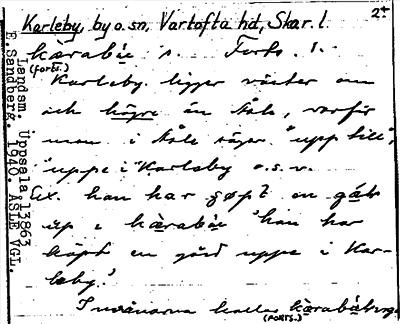 Karleby, by o. sn, Vartofta hd, Skar. l.
2
kàrabấi s. Forts. 1.
(forts.)
Karleby ligger väster om
och högre än Åsle, varför
man i Åsle säger "upp till",
"uppe i" Karleby o.s.v.
Ex. han har şøpt en gấl
up i kàrabấi "han har
köpt en gård uppe i Kar-
leby."
Invånarna kallas
(forts.)
Landsm. Uppsala 13863
E. Sandberg. 1940. ÅSLE VGL.